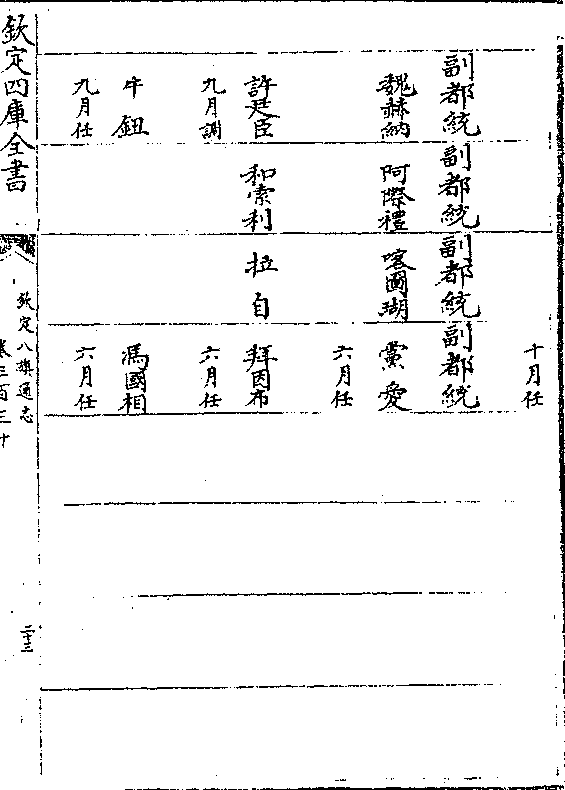 十月任
副都統 副都統 副都統 副都統
魏赫納 阿際禮 喀圖瑚 黨愛
六月任
許廷臣 和索利 拉自 拜因布
九月調 六月任
牛鈕 馮國相
九月任 六月任
欽定四庫全書
欽定八旗通志
卷三百三十
二十三